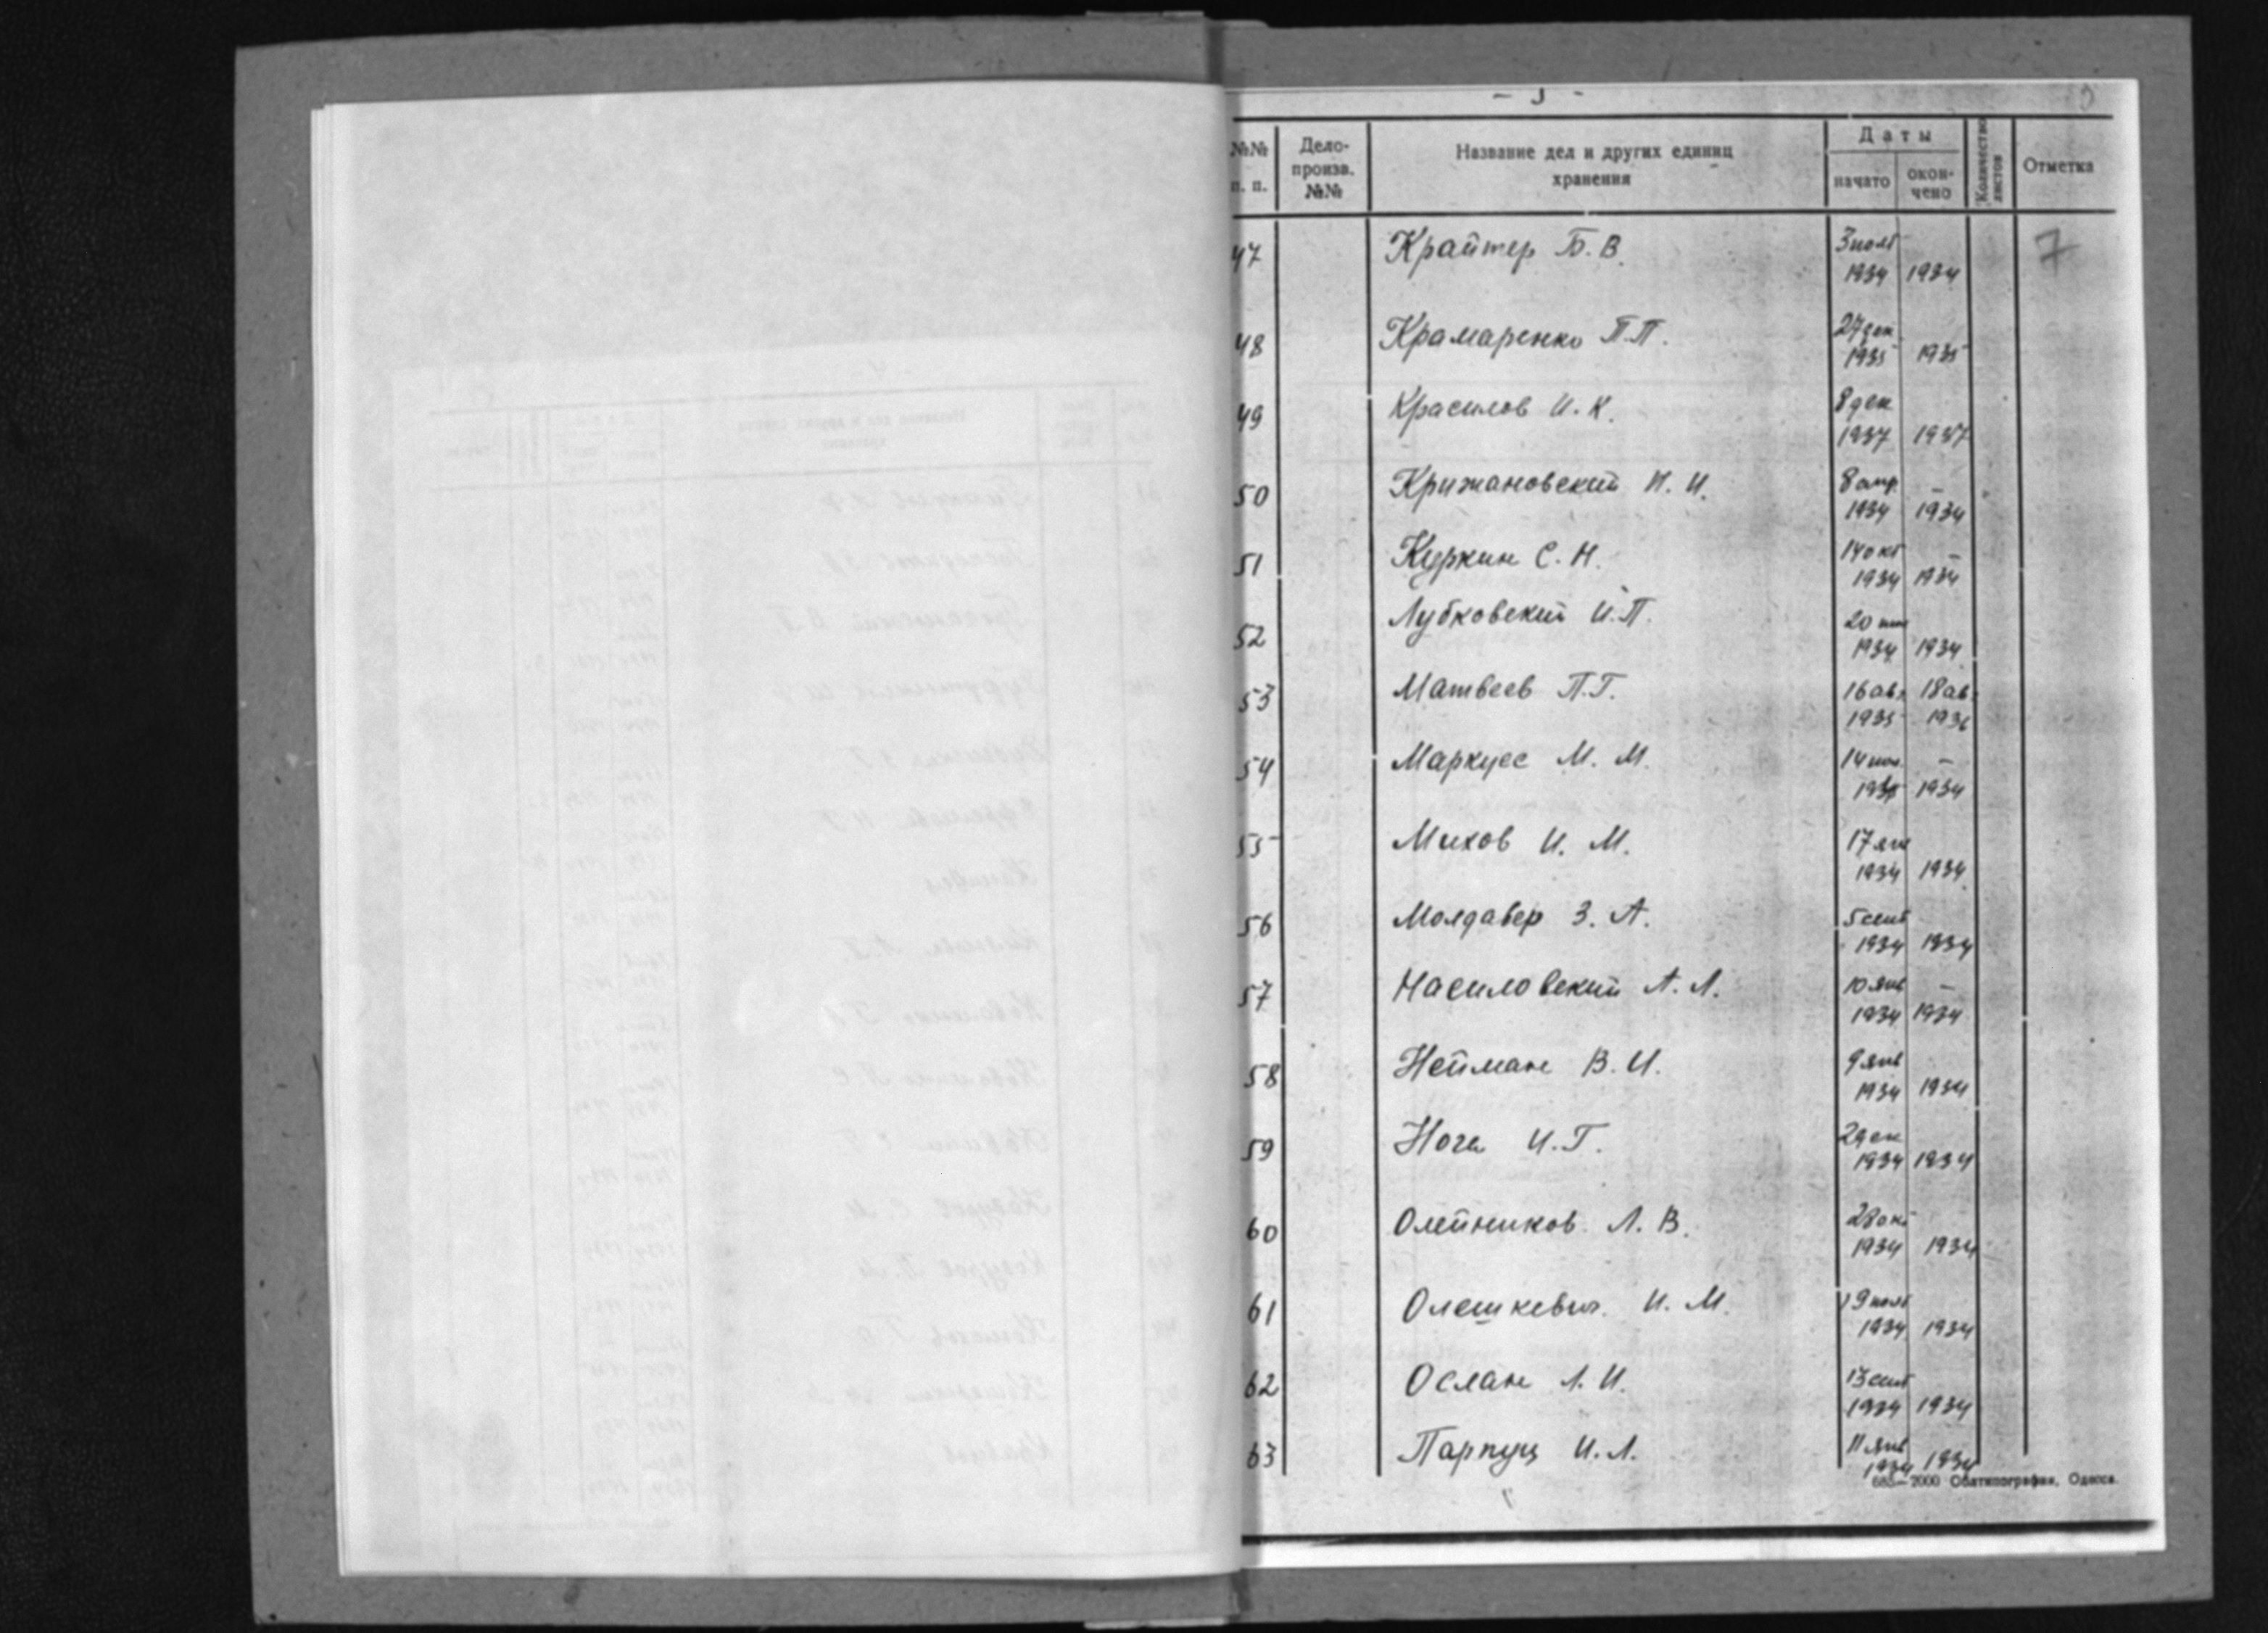 №№ п. п. Дело-произв. №№ Название дел и других единиц хранения Даты начато окончено Количество листов Отметка
47 Крайтер Б. В. 3 нояб 1934 1934 7
48 Крамаренко П.П. 27 дек 1935 1935
49 Красилов И. К. 8 дек 1937 1937
50 Крижановский И. И. 8 апр. 1934 – 1934
51 Куркин С. Н. 14 окт 1934 – 1934
52 Лубковский И.П. 20 1934 1934
53 Матвеев П.Г. 16 ав. 1935 18 ав. 1936
54 Маркусс М. М. 14 – 1934
55 Михов И. М. 17 янв 1934 1934
56 Молдавер З. А. 5 сент 1934 1934
57 Насиловский А. Л. 10 янв 1934 – 1934
58 Нейман В. И. 9 янв 1934 1934
59 Нога И. Г. 2 дек 1934 1934
60 Олейников Л. В. 28 окт 1934 1934
61 Олешкевич И. М. 19 нояб 1934 1934
62 Ослан Л. И. 13 сент 1934 1934
63 Парпуц И. Л. 11 янв 1934 1934
685—2000 Облтипография, Одесса.